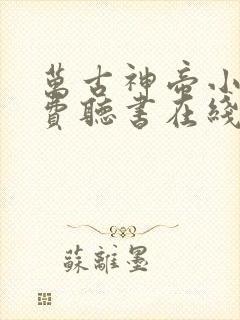 萬古神帝小
費聽書在綫
蘇離墨